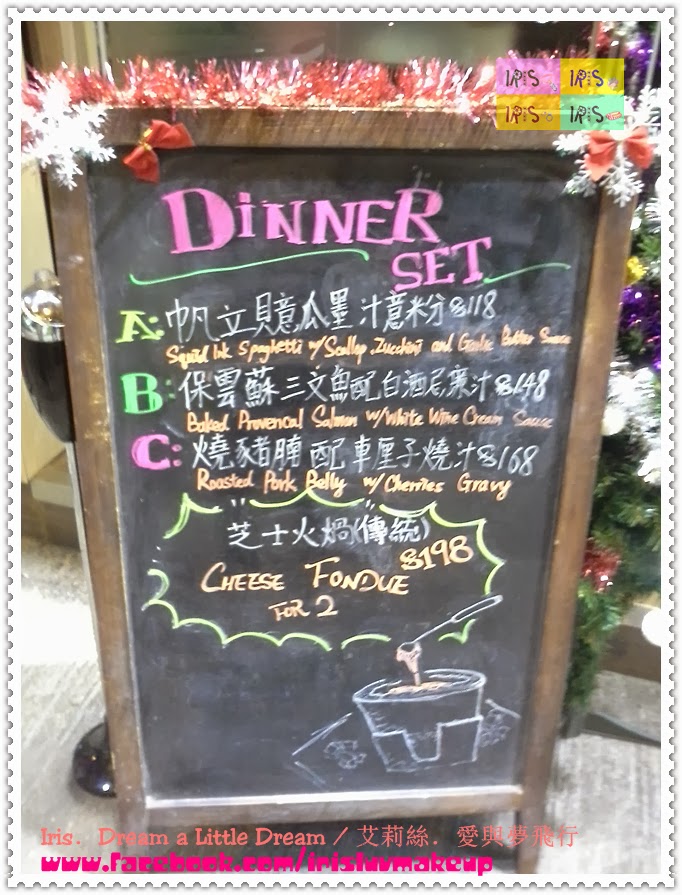 IRIS IRIS
IRIS IRIS
DINNER
SET
A: 帆立貝意瓜墨汁意粉 $118
Squid Ink Spaghetti w/ Scallop, Zucchini and Garlic Butter Sauce
B: 保雲蘇三文魚配白酒忌廉汁 $148
Baked Provencal Salmon w/ White Wine Cream Sauce
C: 燒豬腩配車厘子燒汁 $168
Roasted Pork Belly w/ Cherries Gravy
芝士火煱(傳統)
$198
CHEESE FONDUE
FOR 2
Iris. Dream a Little Dream / 艾莉絲. 愛與夢飛行
www.facebook.com/irisluvmakeup